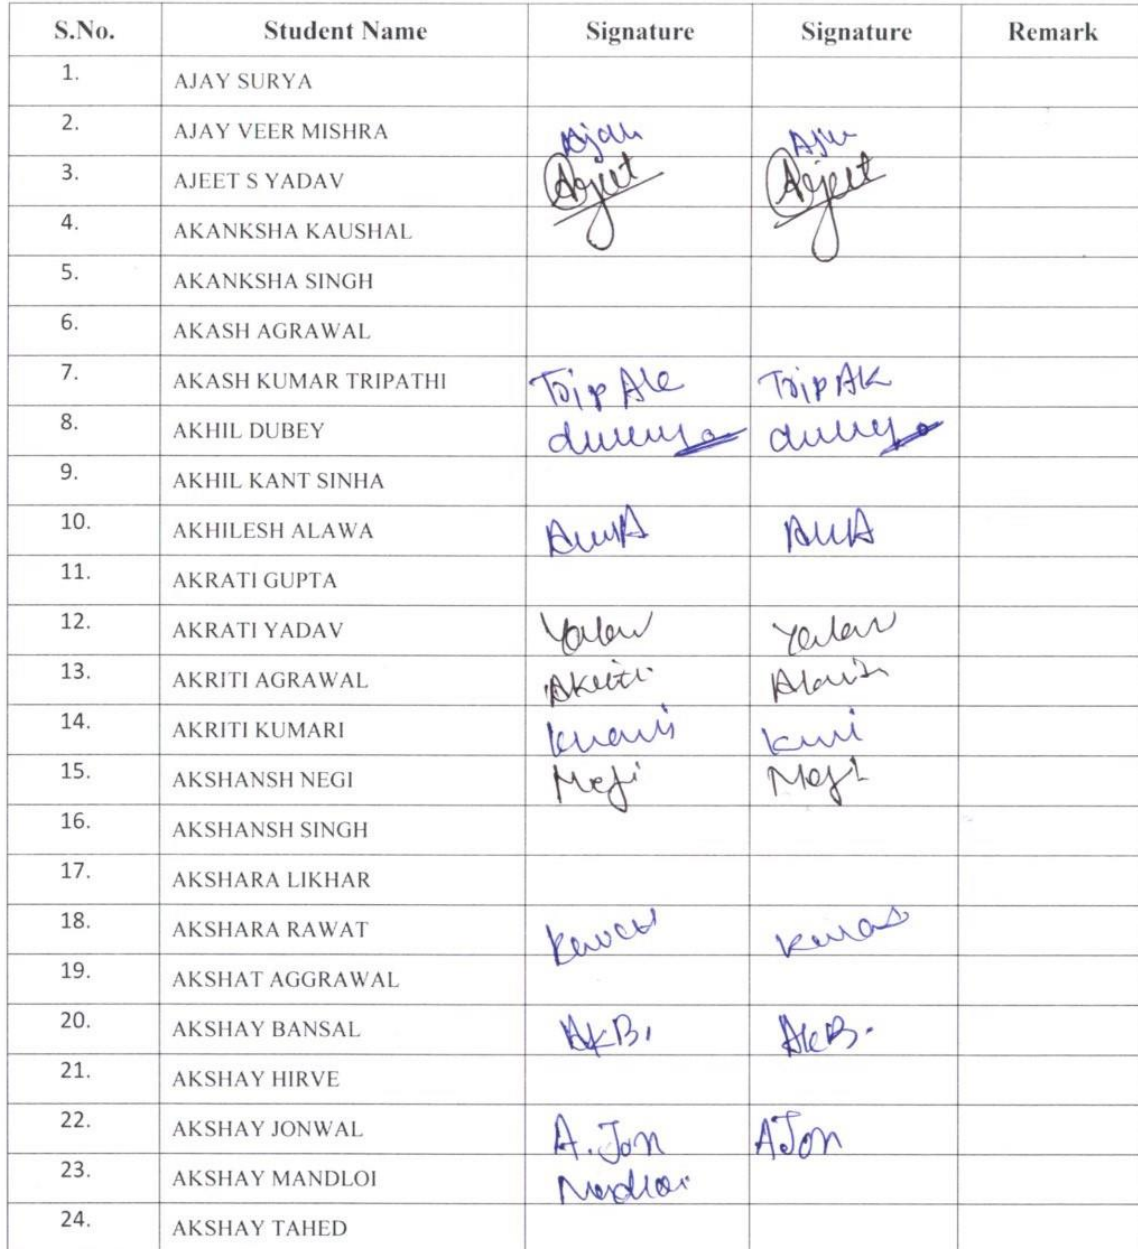 S.No. Student Name Signature Signature Remark
1. AJAY SURYA
2. AJAY VEER MISHRA
3. AJEET S YADAV Arjeet Arjeet
4. AKANKSHA KAUSHAL
5. AKANKSHA SINGH
6. AKASH AGRAWAL
7. AKASH KUMAR TRIPATHI Trip Ak Trip Ak
8. AKHIL DUBEY
9. AKHIL KANT SINHA
10. AKHILESH ALAWA
11. AKRATI GUPTA
12. AKRATI YADAV
13. AKRITI AGRAWAL
14. AKRITI KUMARI
15. AKSHANSH NEGI Negi Negi
16. AKSHANSH SINGH
17. AKSHARA LIKHAR
18. AKSHARA RAWAT
19. AKSHAT AGGRAWAL
20. AKSHAY BANSAL AkB. AkB.
21. AKSHAY HIRVE
22. AKSHAY JONWAL A. Jon AJon
23. AKSHAY MANDLOI Mandloi
24. AKSHAY TAHED